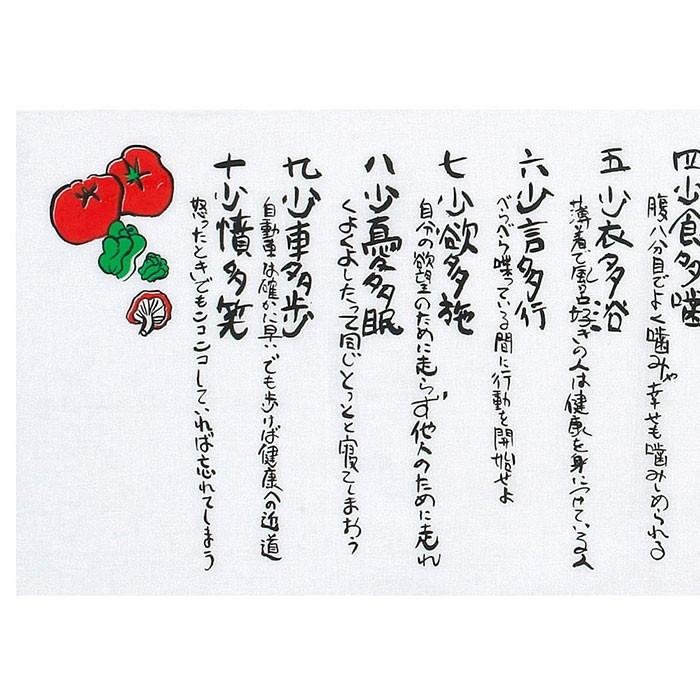 四 少食多噛
腹八分目でよく噛みゃ幸せも噛みしめられる
五 少衣多浴
薄着で風呂好きの人は健康を身につけている人
六 少言多行
べらべら喋っている間に行動を開始せよ
七 少欲多施
自分の欲望のために走らず他人のために走れ
八 少憂多眠
くよくよしたって同じとっとと寝てしまおう
九 少車多歩
自動車は確かに早いでも歩けば健康への近道
十 少憤多笑
怒ったときでもニコニコしていれば忘れてしまう